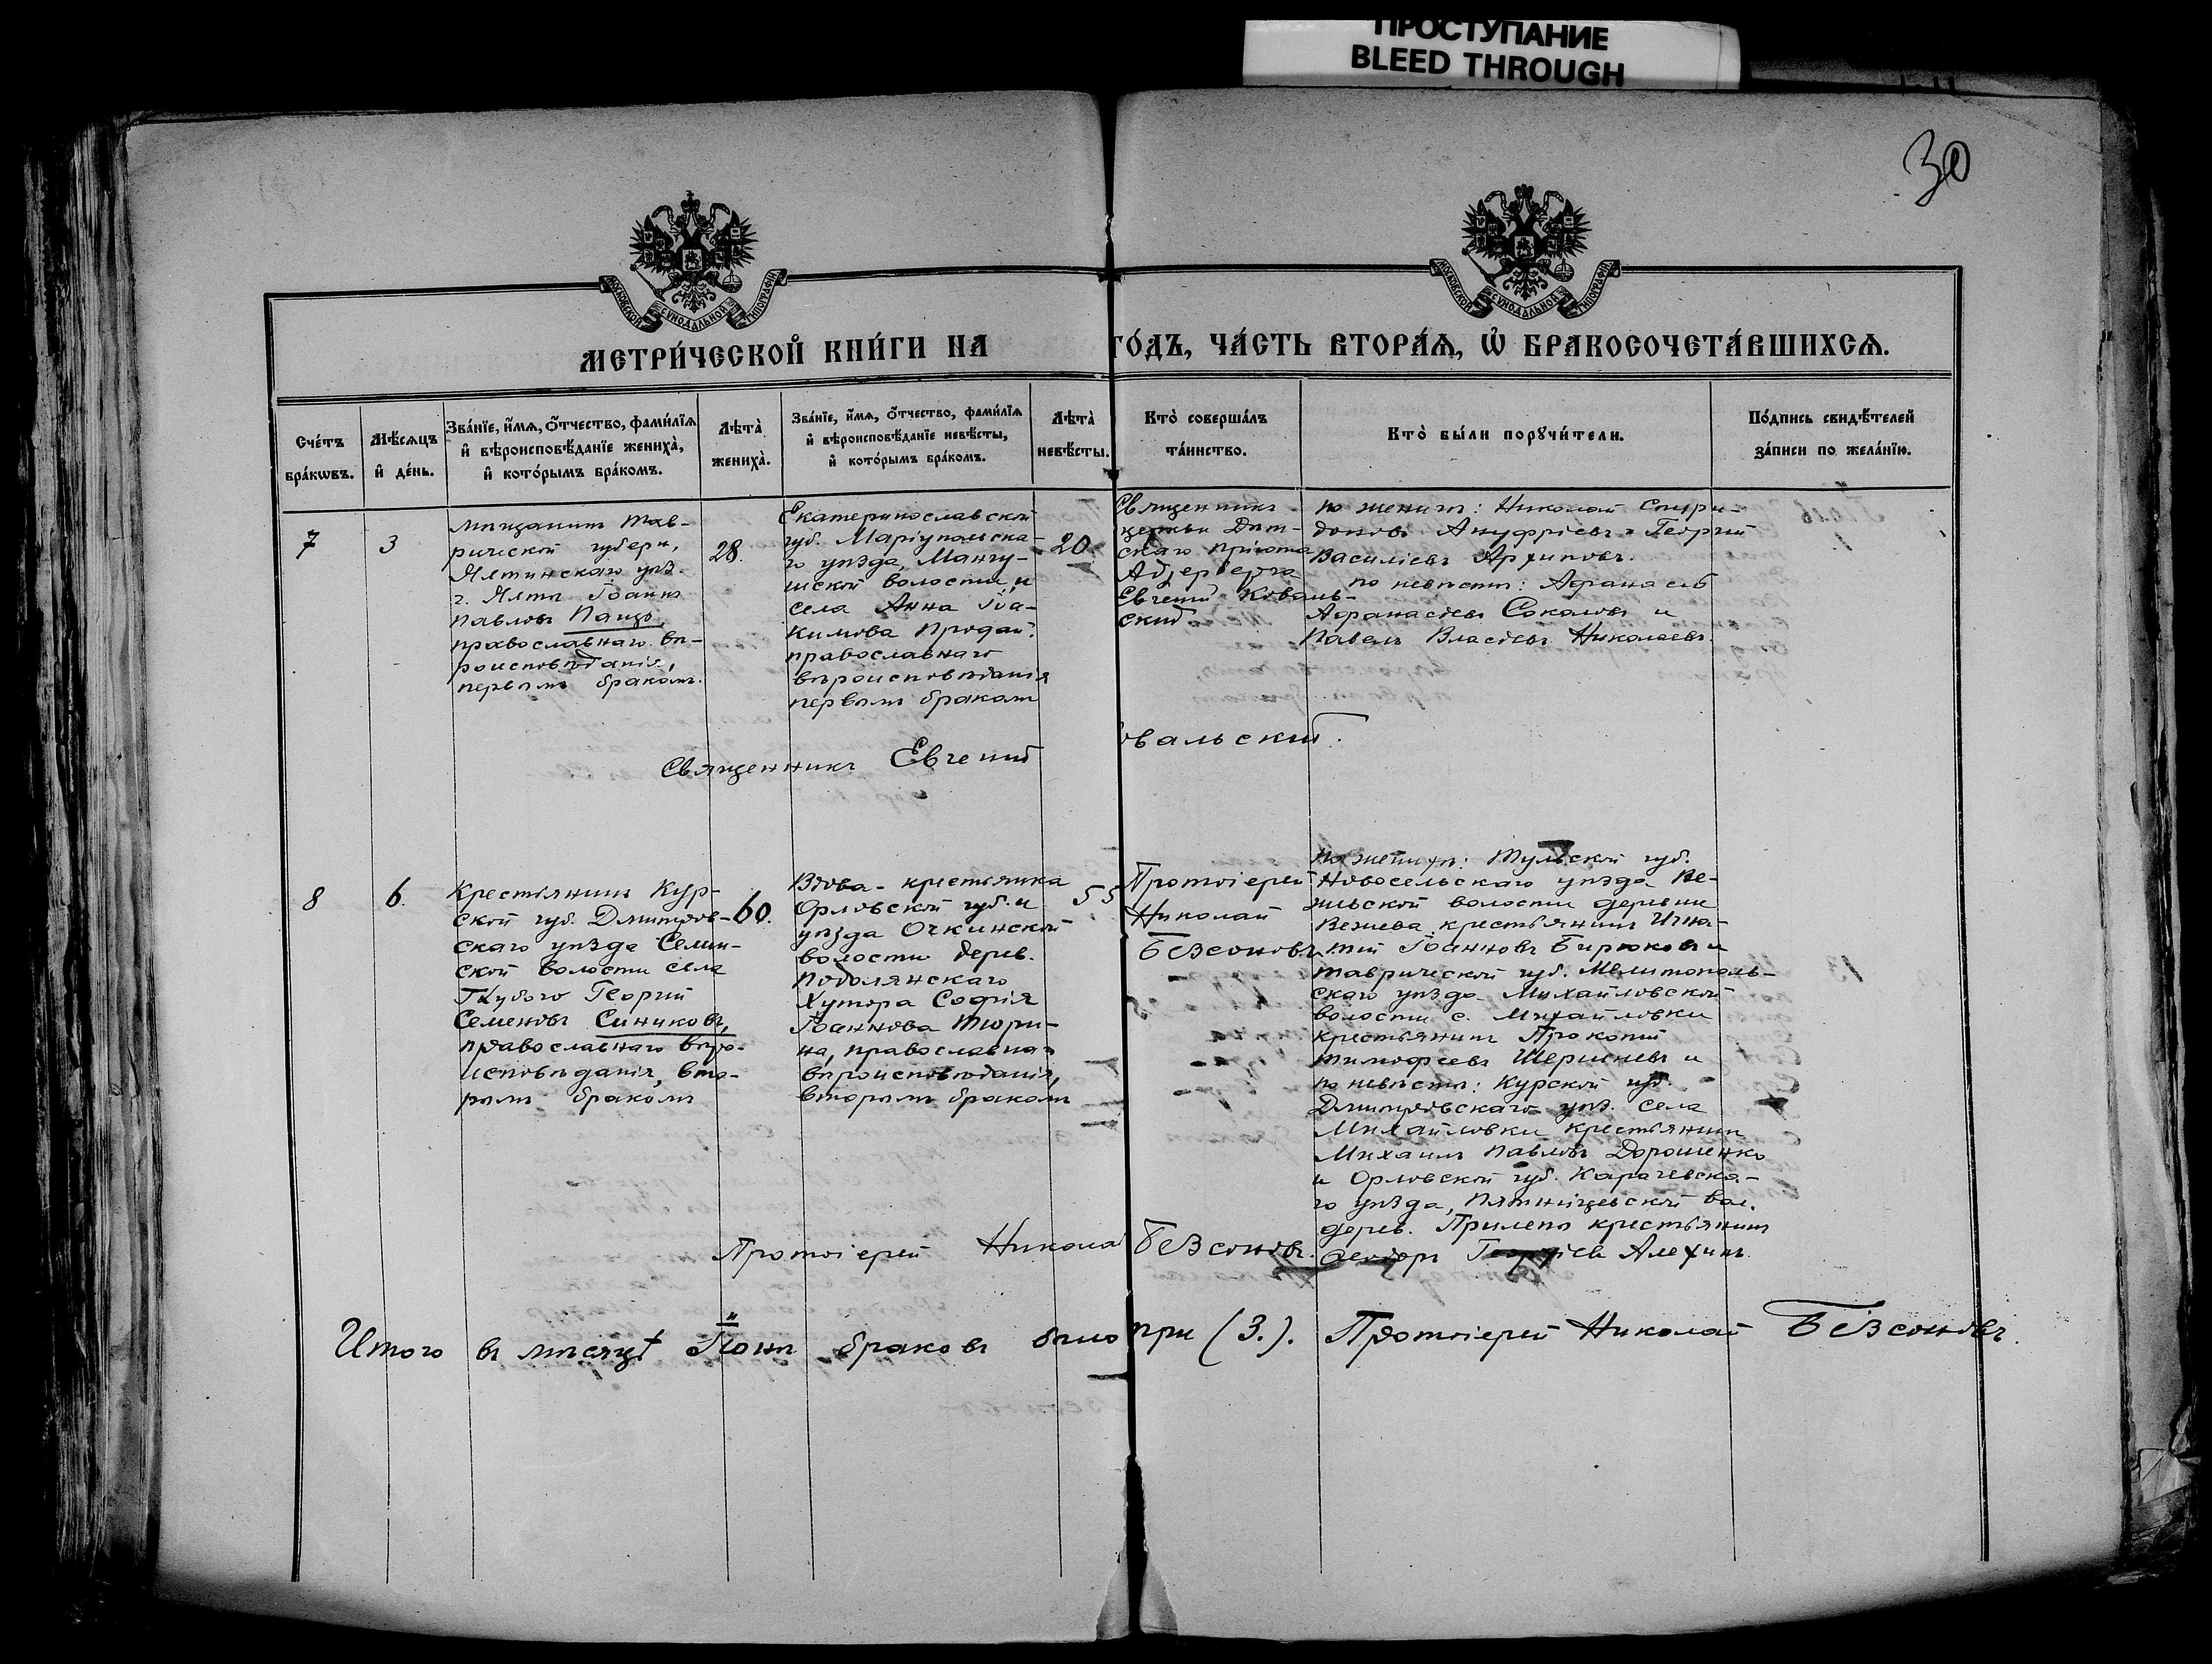 ПРОСТУПАНИЕ
BLEED THROUGH
30
МОСКОВСКОЙ СѴНОДАЛЬНОЙ ТИПОГРАФІИ
МОСКОВСКОЙ СѴНОДАЛЬНОЙ ТИПОГРАФІИ
МЕТРИ́ЧЕСКОЙ КНИ́ГИ НА ГО́ДЪ, ЧА́СТЬ ВТОРА́Ѧ, Ѽ БРАКОСОЧЕТА́ВШИХСѦ.
Сче́тъ
бра́кѡвъ.
Мѣ́сѧцъ
и҆ де́нь.
Зва́нїе, и҆́мѧ, ѻ҆́тчество, фами́лїѧ
и҆ вѣроисповѣ́данїе жениха̀,
и҆ кото́рымъ бра́комъ.
Лѣта̀
жениха̀.
Зва́нїе, и҆́мѧ, ѻ҆́тчество, фами́лїѧ
и҆ вѣроисповѣ́данїе невѣ́сты,
и҆ кото́рымъ бра́комъ.
Лѣта̀
невѣ́сты.
Кто̀ соверша́лъ
та́инство.
Кто̀ бы́ли порꙋчи́тели.
По́дпись свидѣ́телей
за́писи по жела́нїю.
7
3
мѣщанинъ Тав-
рической губерн,
Ялтинскаго уѣз.
г. Ялты Іоаннъ
Павловъ Панцъ,
православнаго вѣ-
роисповѣданія,
первымъ бракомъ.
28.
Екатеринославской
губ. Маріупольска-
го уѣзда, Мангу-
шской волости, и
села Анна Іоа-
кимова Продай.
православнаго
вѣроисповѣданія
первымъ бракомъ
20.
Священникъ
церкви Дѣт-
скаго пріюта
Евгеній Коваль-
скій
по женихѣ: Николай Спири-
доновъ Ануфріевъ и Георгій
Василіевъ Архиповъ.
по невѣстѣ: Афанасій
Афанасіевъ Соколовъ и
Павелъ Власіевъ Николаевъ.
Священникъ Евгеній Ковальскій.
8
6.
Крестьянинъ Кур-
ской губ. Дмитров-
скаго уѣзда Селин-
ской волости села
Георгій
Семеновъ Синиковъ,
православнаго вѣро-
исповѣданія, вто-
рымъ бракомъ
60.
Вдова-крестьянка
Орловской губ. и
уѣзда Очкинской
волости дерев.
Подолянскаго
Хутора Софія
Іоаннова Тюри-
на, православнаго
вѣроисповѣданія,
вторымъ бракомъ
55
Протоіерей
Николай
Безсоновъ.
по женихѣ: Тульской губ.
Новосельскаго уѣзда Ве-
жьской волости деревни
Вежева крестьянинъ Игна-
тій Іоанновъ Бирюковъ и
Таврической губ. Мелитополь-
скаго уѣзда Михайловской
волости с. Михайловки
крестьянинъ Прокопій
Тимофеевъ Шершневъ и
по невѣстѣ: Курской губ.
Дмитровскаго уѣз. села
Михайловки крестьянинъ
Михаилъ Павловъ Дорошенко
и Орловской губ. Карачевска-
го уѣзда, Пятницевской вол.
дерев. Прилепъ крестьянинъ
Ѳеодоръ Георгіевъ Алехинъ.
Протоіерей Николай Безсоновъ.
Итого въ мѣсяцѣ Іюнѣ браковъ было три (3.). Протоіерей Николай Безсоновъ.